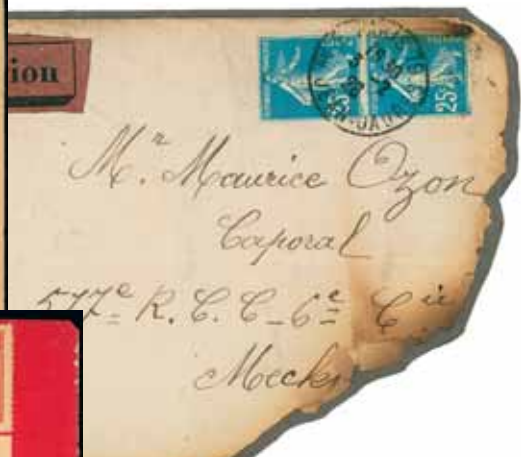 ion
25c
Mr. Maurice Ozon
Caporal
517e R.C.C_6e Cie